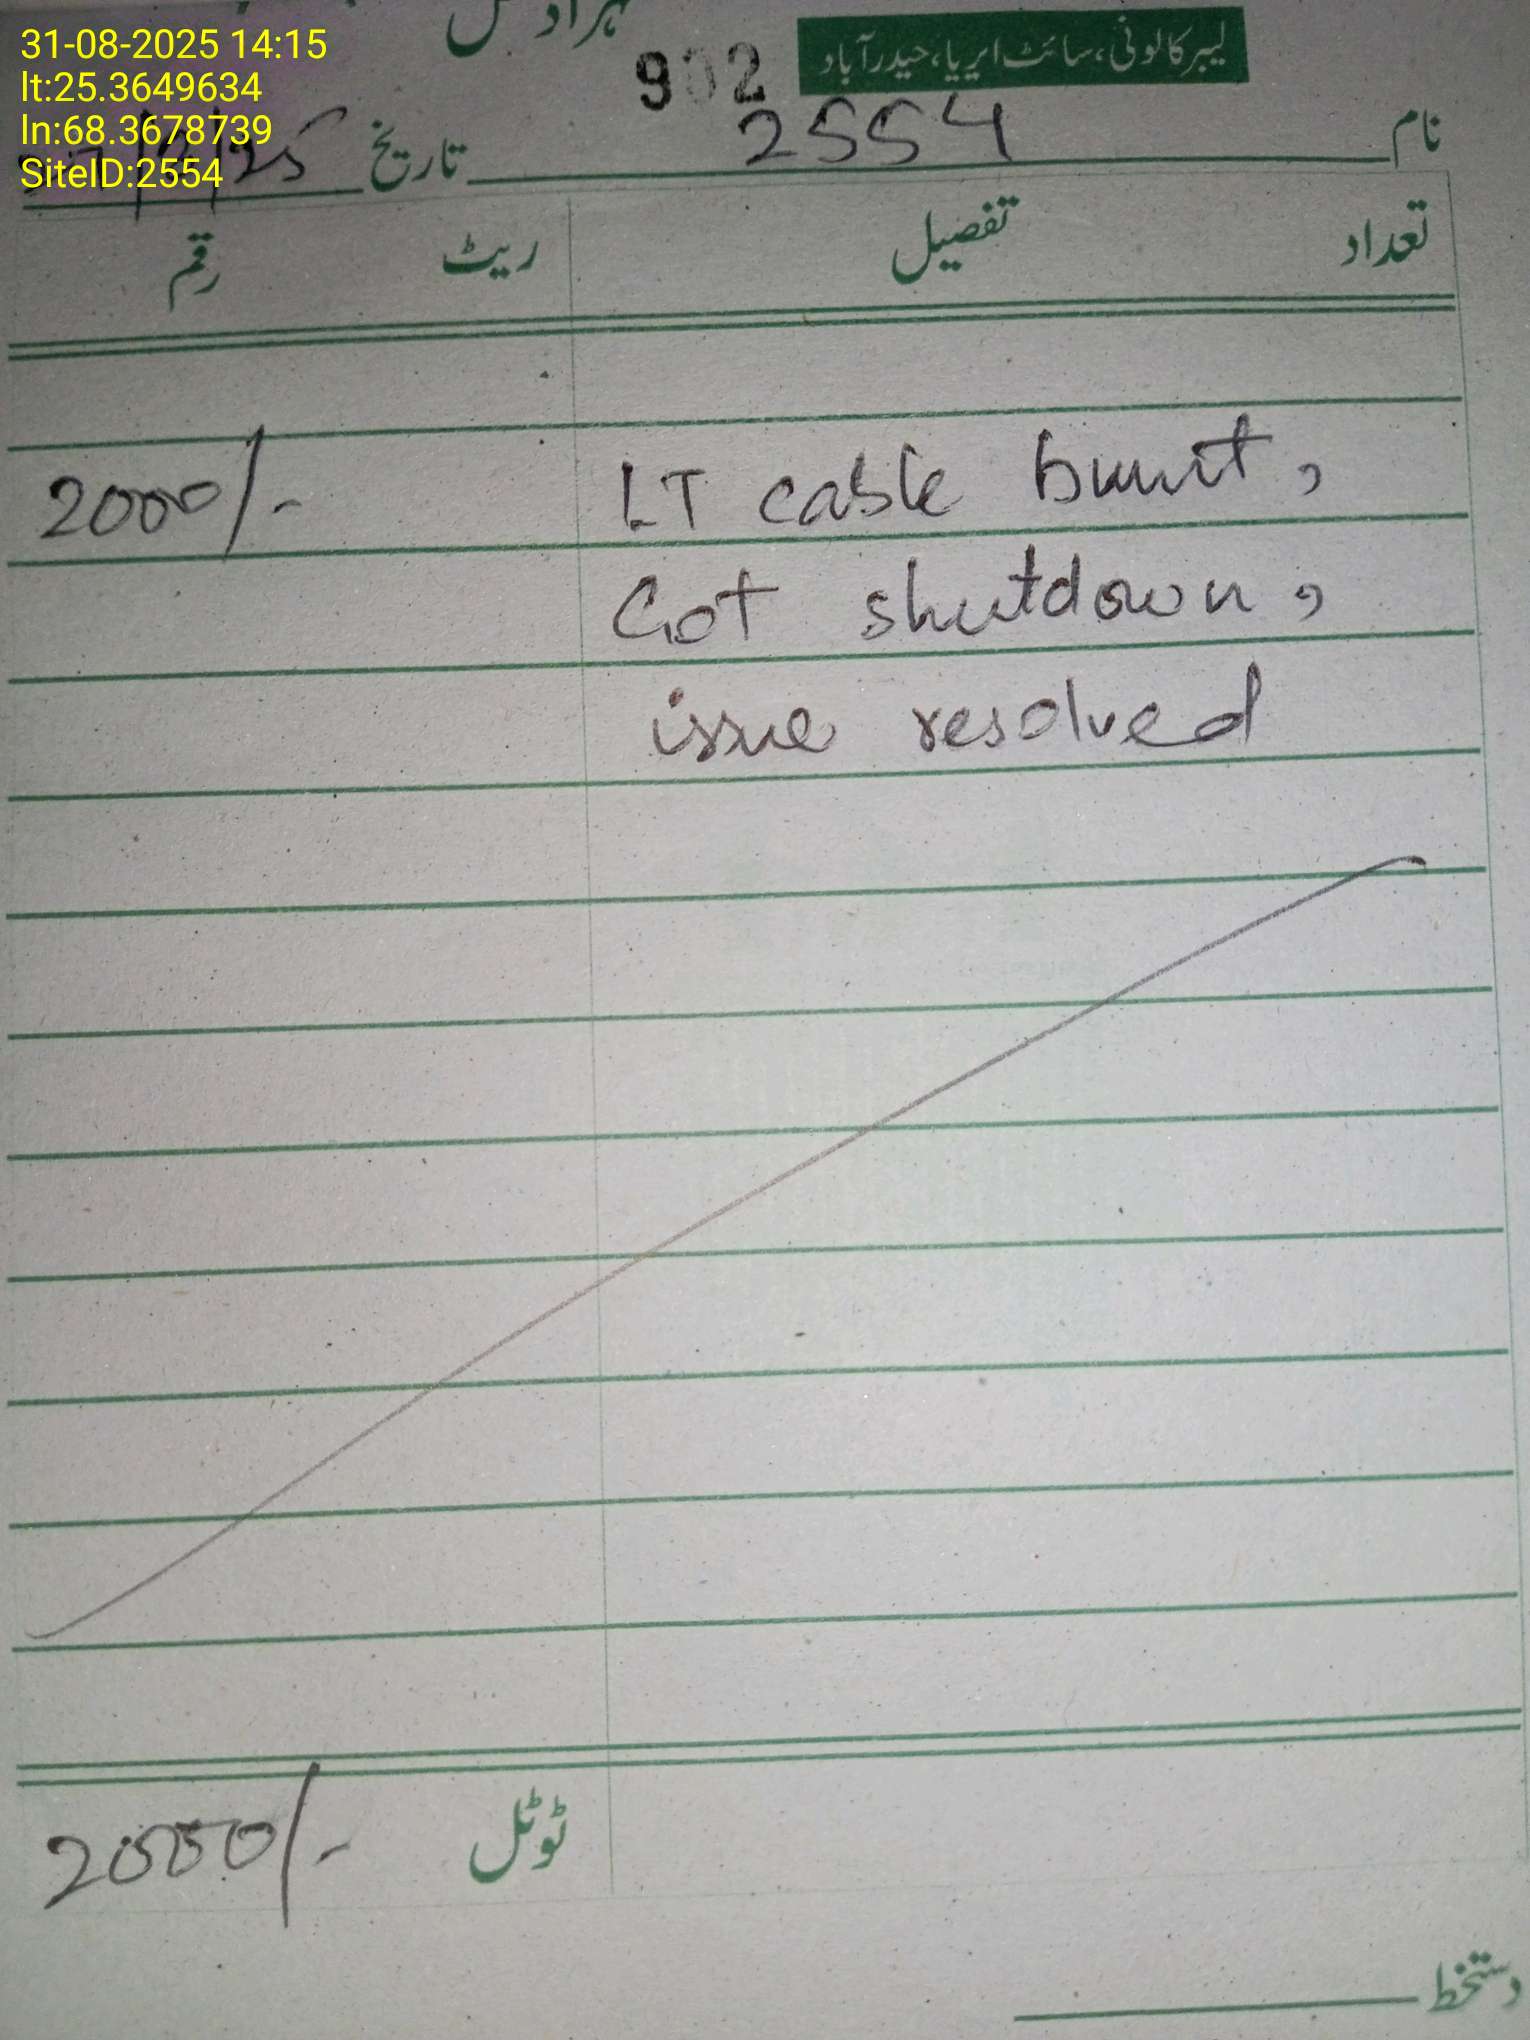 31-08-2025 14:15
lt:25.3649634
ln:68.3678739
SiteID:2554
902
لیبر کالونی، سائٹ ایریا، حیدرآباد
نام 2554
تاریخ /8/25
تعداد تفصیل ریٹ رقم
LT cable burnt, 2000/-
Got shutdown,
issue resolved
ٹوٹل 2000/-
دستخط